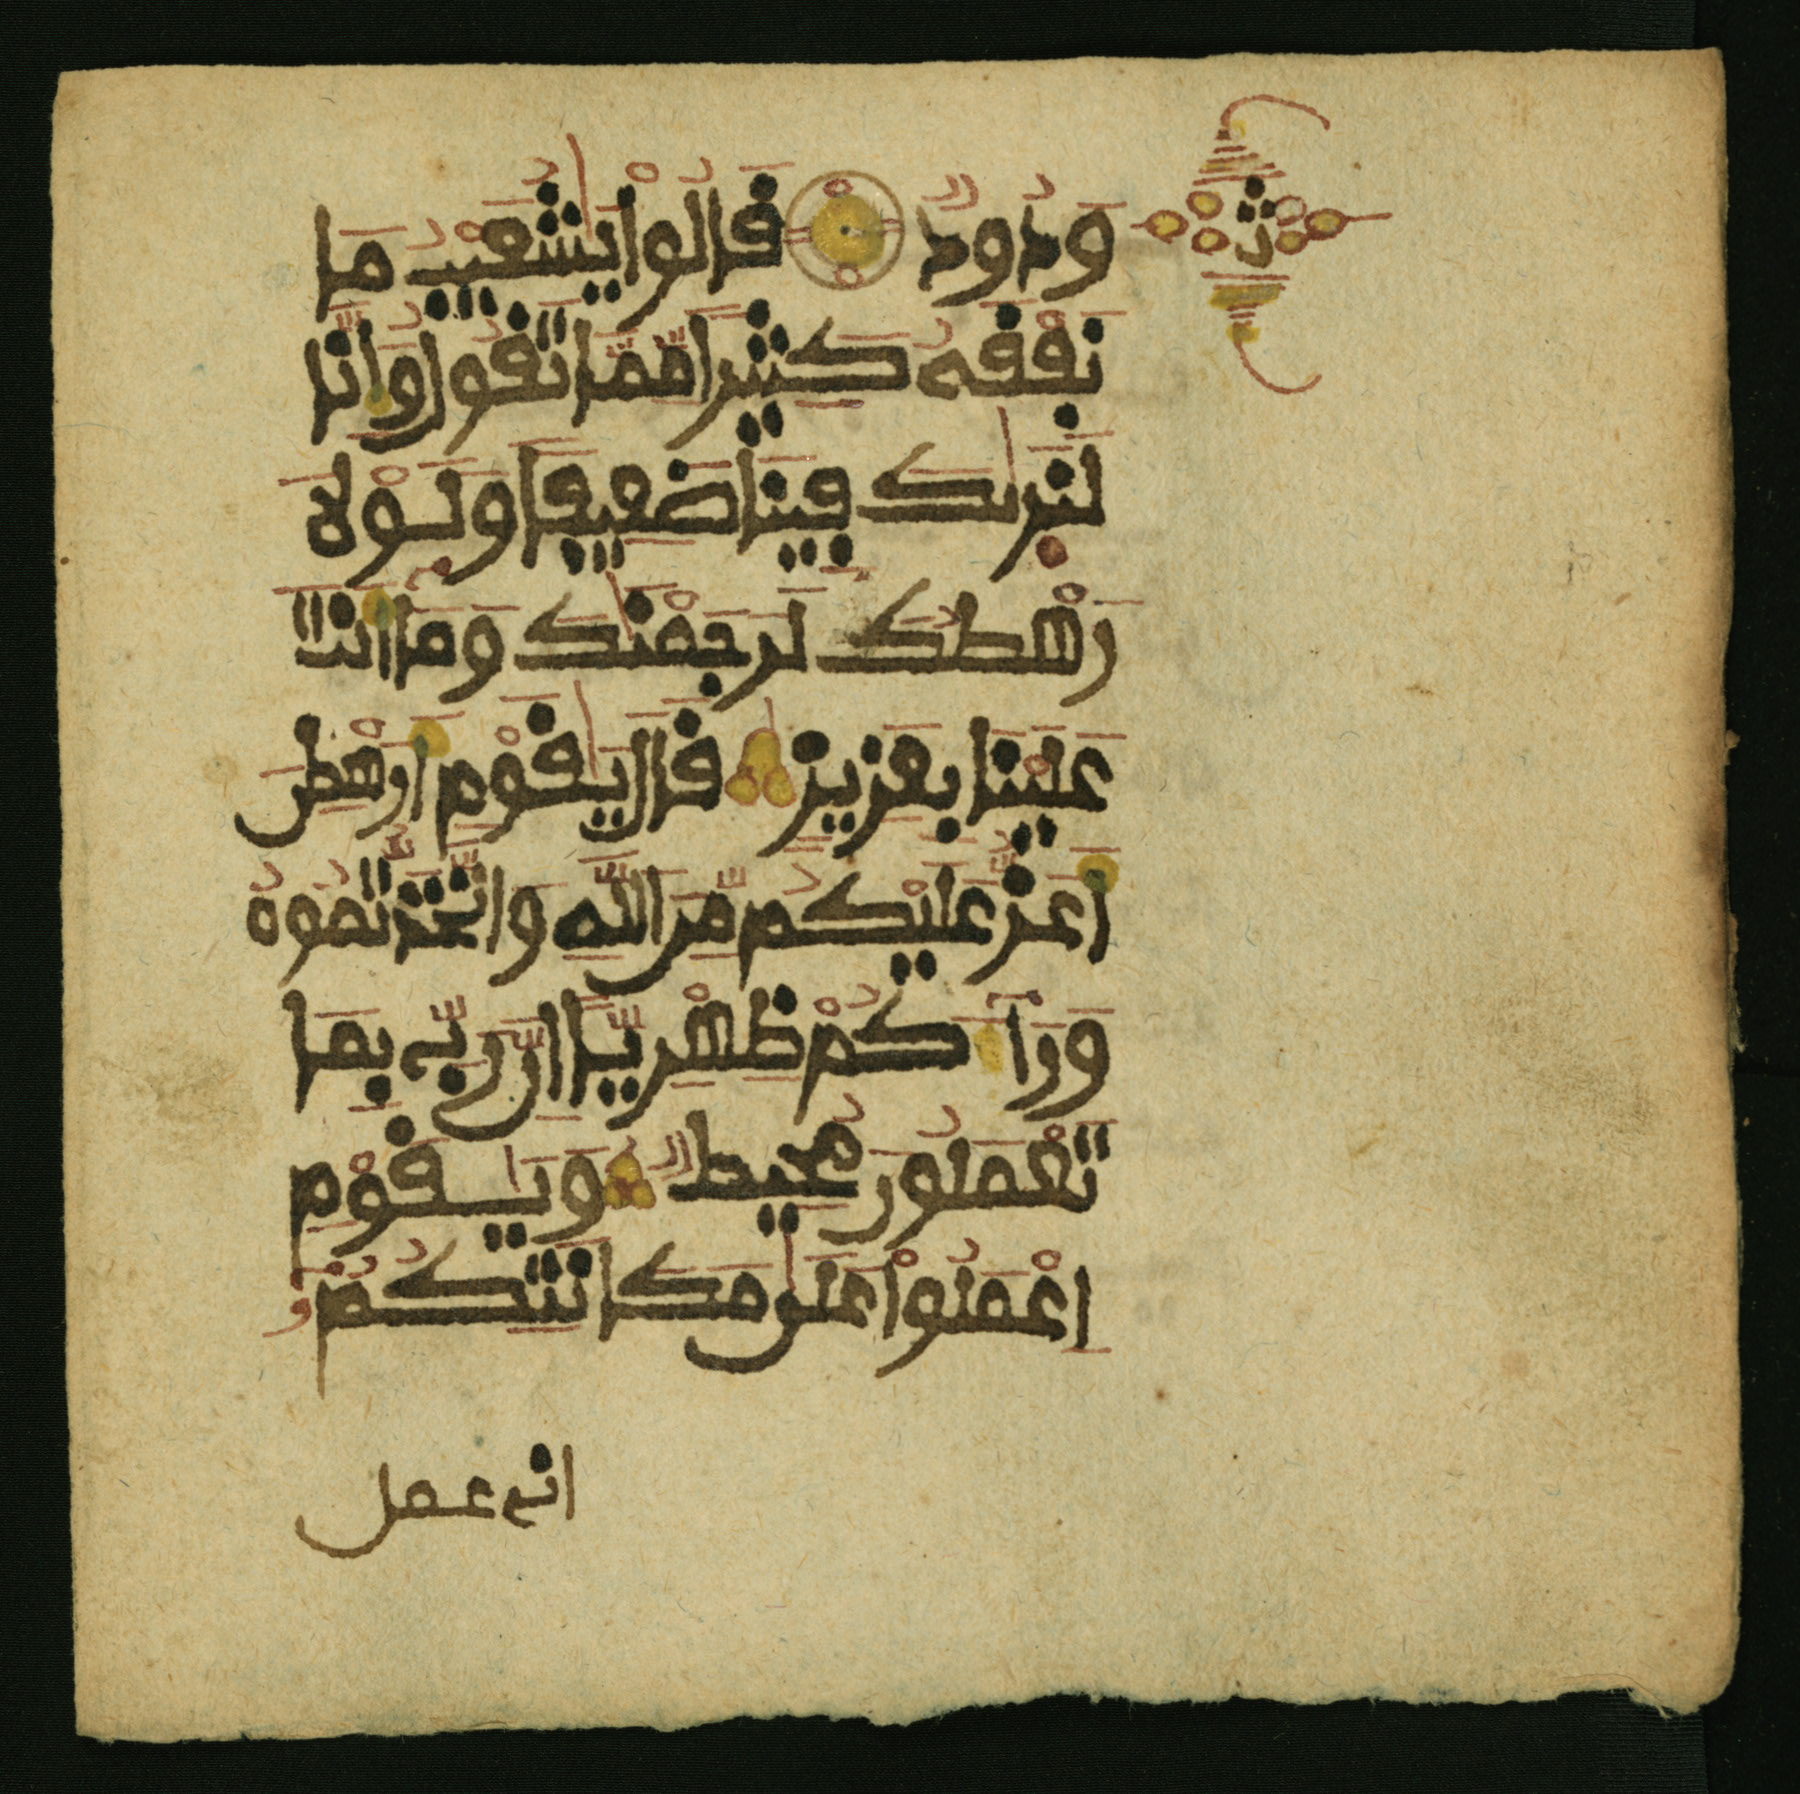 وَدُودٌ قَالُوا۟ يَٰشُعَيْبُ مَا
نَفْقَهُ كَثِيرًا مِّمَّا تَقُولُ وَإِنَّا
لَنَرَىٰكَ فِينَا ضَعِيفًا وَلَوْلَا
رَهْطُكَ لَرَجَمْنَٰكَ وَمَا أَنتَ
عَلَيْنَا بِعَزِيزٍ قَالَ يَٰقَوْمِ أَرَهْطِي
أَعَزُّ عَلَيْكُم مِّنَ اللَّهِ وَاتَّخَذتُّمُوهُ
وَرَآءَكُمْ ظِهْرِيًّا إِنَّ رَبِّي بِمَا
تَعْمَلُونَ مُحِيطٌ وَيَٰقَوْمِ
اعْمَلُوا۟ عَلَىٰ مَكَانَتِكُمْ
ث
اني عمل